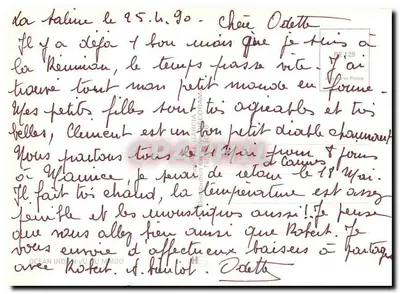 La Saline le 25.4.90. Chère Odette
Il y a déjà 1 bon mois que je suis à
la Réunion, le temps passe vite. J'ai
trouvé tout mon petit monde en forme.
Mes petites filles sont très agréables et très
belles, Clément est un bon petit diable charmant
Nous partons tous le 11 Mai pour 8 jours
à Maurice, je serai de retour à Cannes le 18 Mai.
Il fait très chaud, la température est assez
pénible et les moustiques aussi! Je pense
que vous allez bien ainsi que Robert. Je
vous envoie d'affectueux baisers à partager
avec Robert. A bientôt. Odette
OCEAN INDIEN VU DU